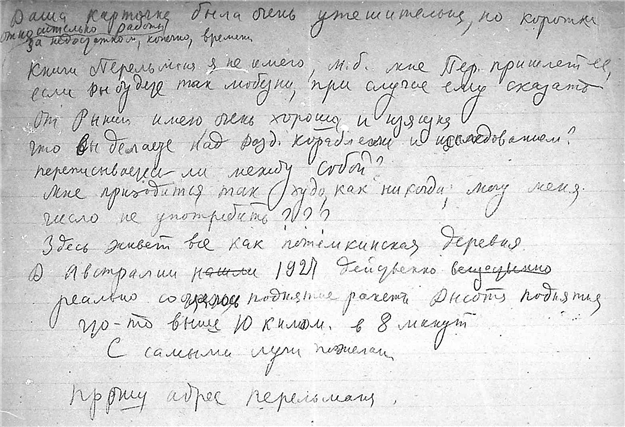 Ваша карточка была очень утешительна, но коротка
относительно работы
за недостатком, конечно, времени
Книги Перельмана я не имею, м.б. мне Пер. пришлет ее,
если Вы будете так любезны, при случае ему сказать
От Рынина имею очень хорошую и изящную
что Вы делаете над возд. кораблем и исследованием?
переписываетесь ли между собой?
мне приходится так худо, как никогда; могу меня
число не употребить ???
Здесь живет все как потемкинская деревня
В Австралии нашли 1927 действенно
реально поднятие ракеты высота поднятия
что-то выше 10 килом. в 8 минут
С самыми лучш пожелан
прошу адрес перельмана.